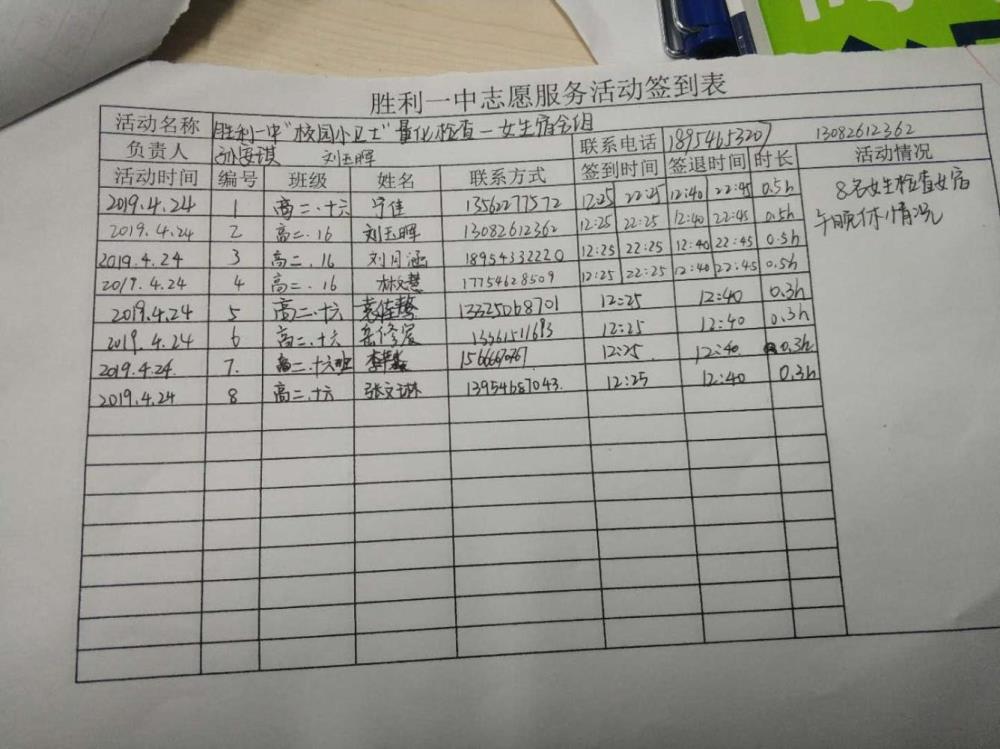 胜利一中志愿服务活动签到表
活动名称 胜利一中"校园小卫士"量化检查—女生宿舍组 联系电话 18954653207 13082612362
负责人 孙安琪 刘玉晖 签到时间 签退时间 时长 活动情况
活动时间 编号 班级 姓名 联系方式
2019.4.24 1 高二.十六 宁佳 13562277572 12:25 22:25 12:40 22:45 0.5h 8名女生检查女宿
2019.4.24 2 高二.16 刘玉晖 13082612362 12:25 22:25 12:40 22:45 0.5h 午晚休情况
2019.4.24 3 高二.16 刘月涵 18954332220 12:25 22:25 12:40 22:45 0.5h
2019.4.24 4 高二.16 林文慧 17754628509 12:25 22:25 12:40 22:45 0.5h
2019.4.24 5 高二.十六 13325068701 12:25 12:40 0.3h
2019.4.24 6 高二.十六 岳修宸 13361511693 12:25 12:40 0.3h
2019.4.24. 7. 高二.十六班 12:25 12:40 0.3h
2019.4.24 8 高二.十六 张文琳 13954687043. 12:25 12:40 0.3h